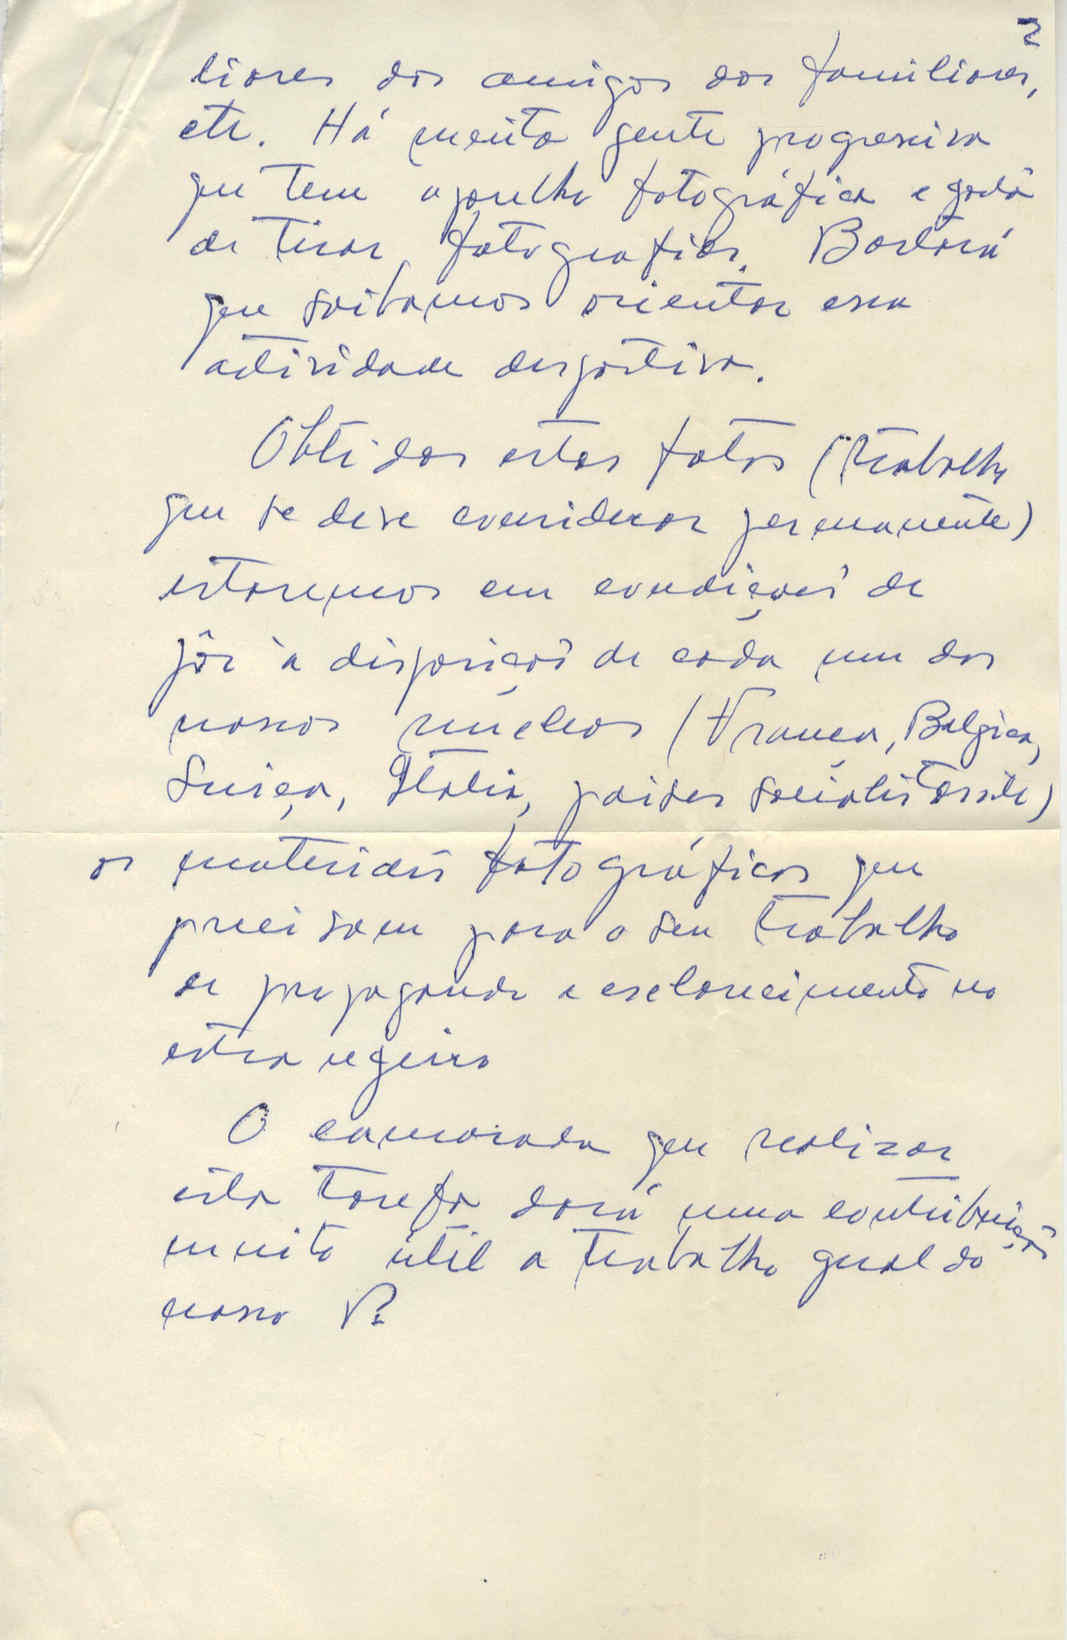 2
liares dos amigos dos familiares,
etc. Há muita gente progressiva
que tem aparelho fotográfico e gosta
de tirar fotografias. Bastará
que saibamos orientar essa
actividade desportiva.
Obtidas estas fotos (trabalho
que se deve considerar permanente)
estaremos em condições de
pôr à disposição de cada um dos
nossos núcleos (França, Belgica,
Suiça, Italia, paises socialistas etc)
os materiais fotográficos que
precisam para o seu trabalho
de propaganda e esclarecimento no
estrangeiro
O camarada que realizar
esta tarefa dará uma contribuição
muito útil a trabalho geral do
nosso P.